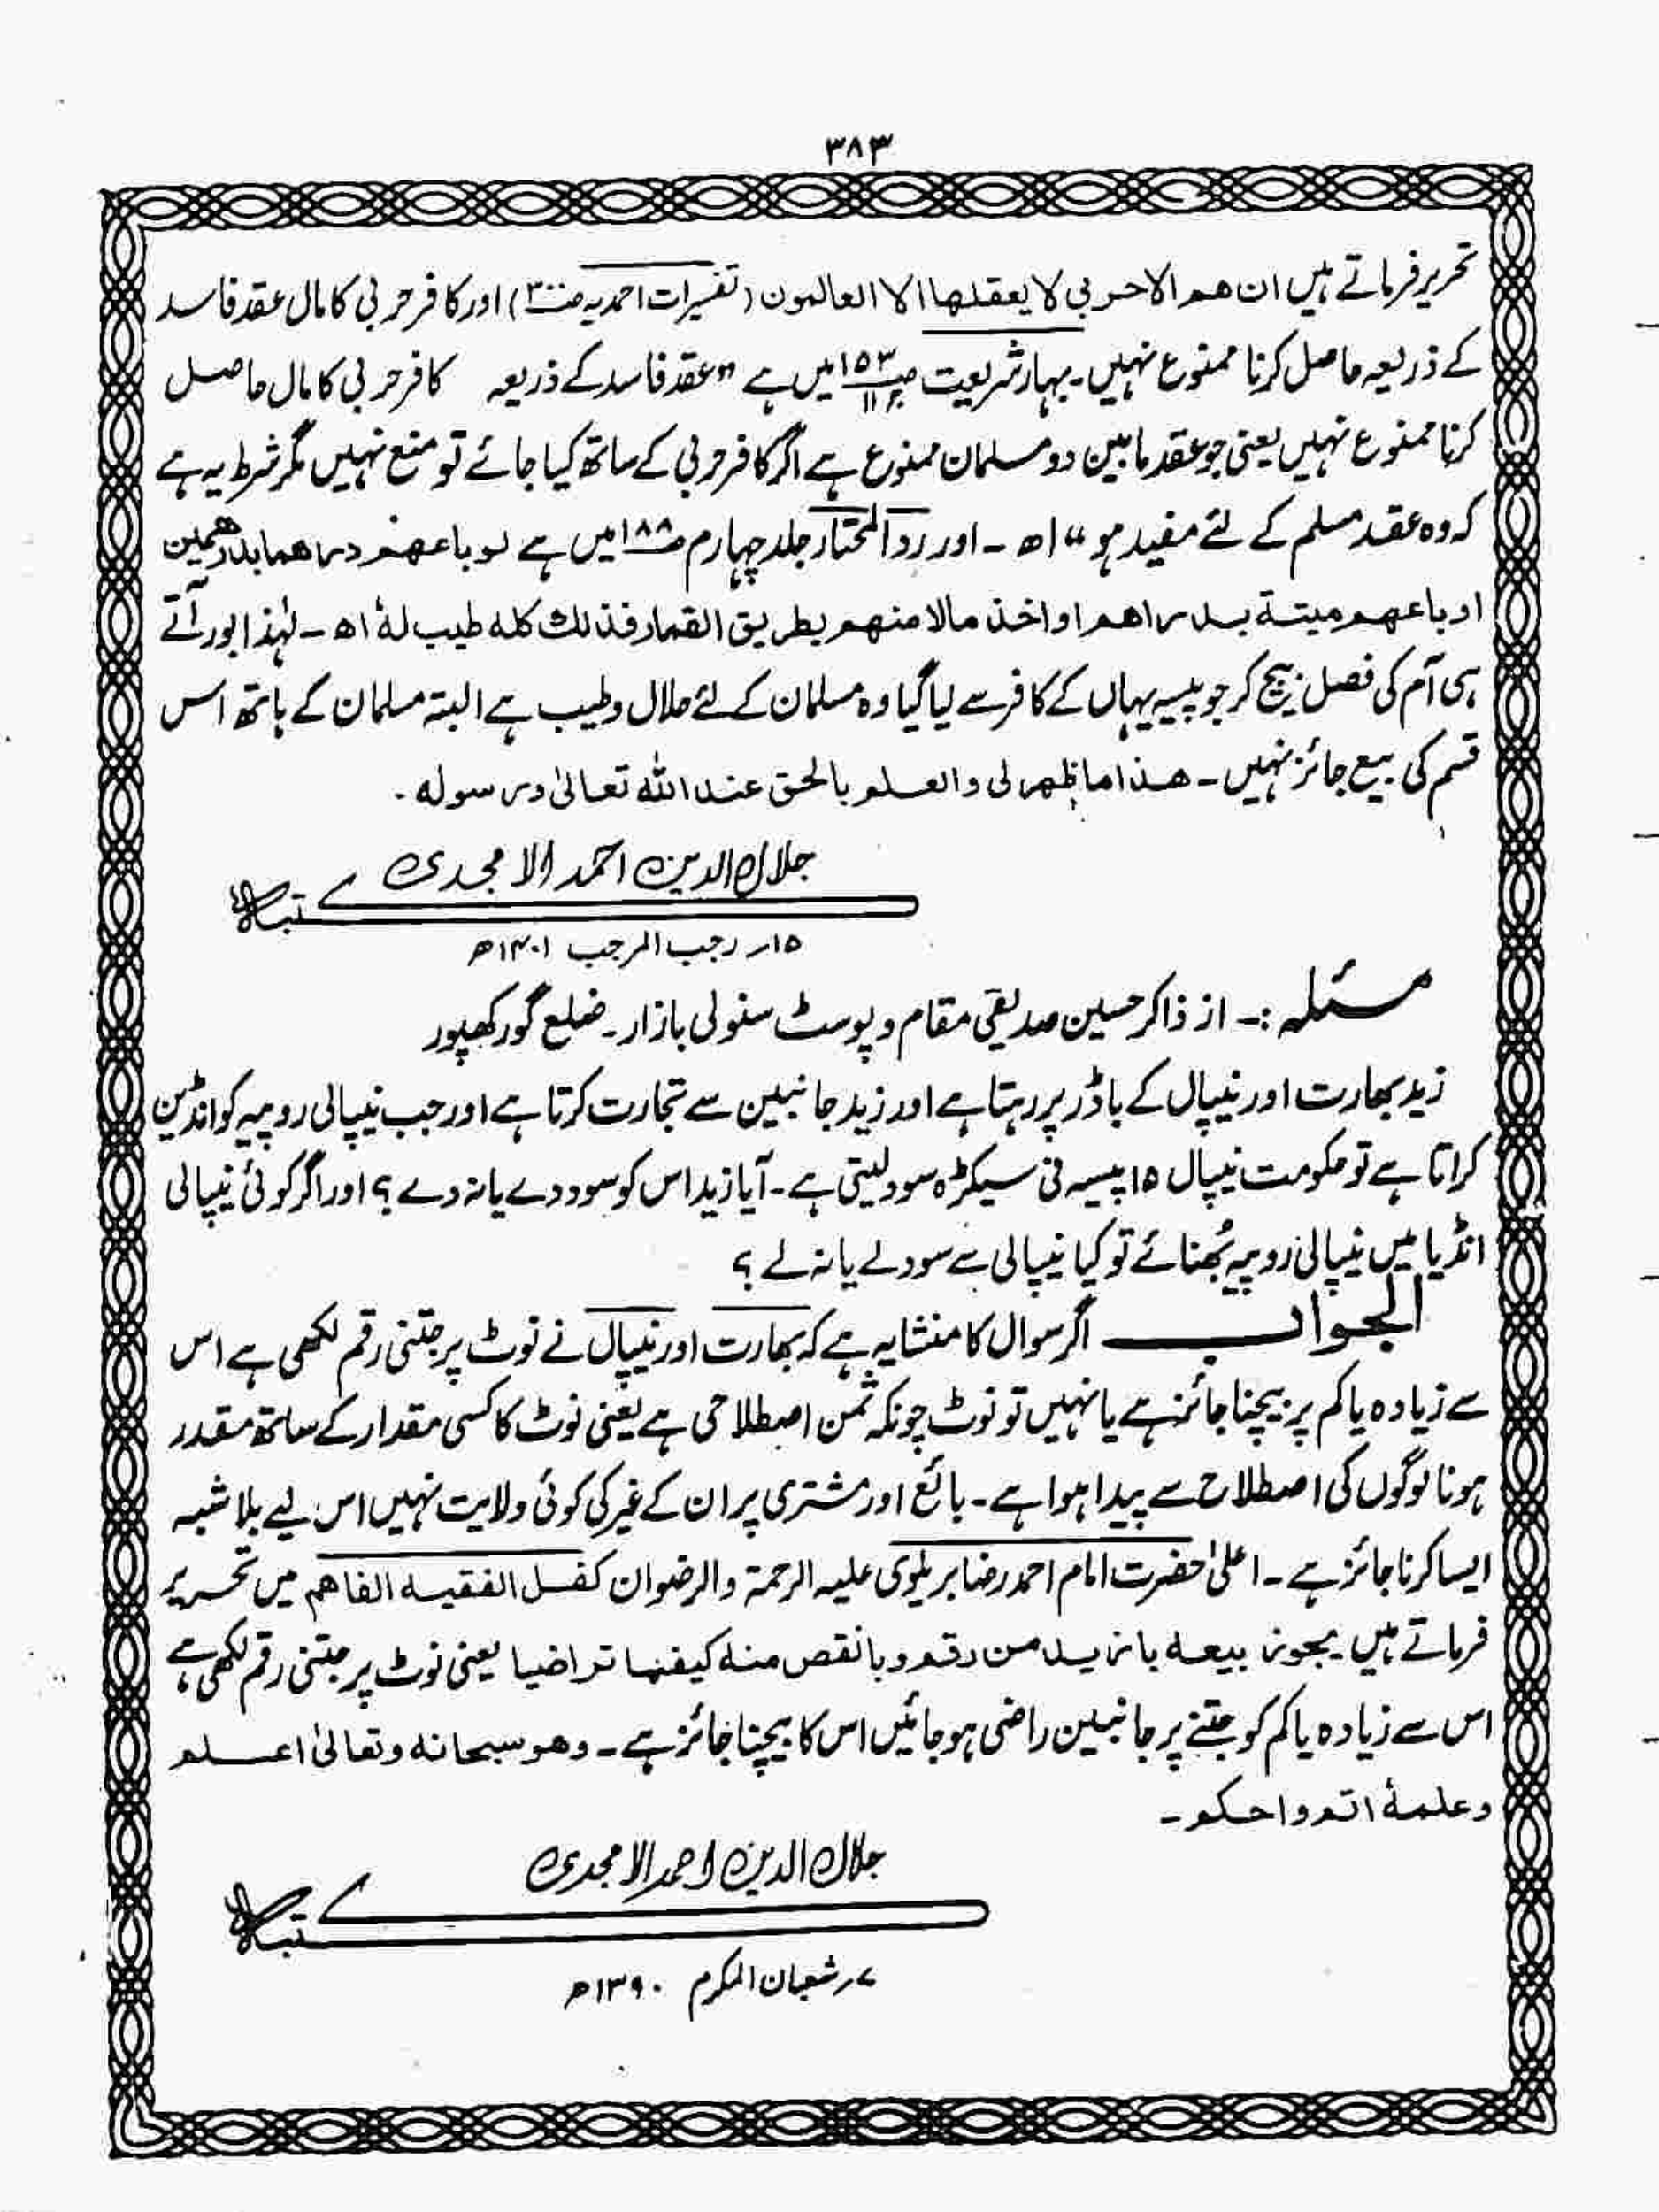 ۳۸۳
تحریر فرماتے ہیں ان ھم الا حربی لا یعقلھا الا العالمون (تفسیرات احمدیہ ص۳۰۰) اور کافر حربی کا مال عقد فاسد
کے ذریعہ حاصل کرنا ممنوع نہیں۔ بہار شریعت ص۱۵۳ ج۱۱ میں ہے "عقد فاسد کے ذریعہ کافر حربی کا مال حاصل
کرنا ممنوع نہیں یعنی جو عقد مابین دو مسلمان ممنوع ہے اگر کافر حربی کے ساتھ کیا جائے تو منع نہیں مگر شرط یہ ہے
کہ وہ عقد مسلم کے لئے مفید ہو" اھ ۔ اور ردالمحتار جلد چہارم ص۱۸۸ میں ہے لو باعھم درھما بدرھمین
او باعھم میتۃ بدراھم او اخذ مالا منھم بطریق القمار فذلك کلہ طیب لہٗ اھ ۔ لہٰذا بور آتے
ہی آم کی فصل بیچ کر جو پیسہ یہاں کے کافر سے لیا گیا وہ مسلمان کے لئے حلال وطیب ہے البتہ مسلمان کے ہاتھ اس
قسم کی بیع جائز نہیں۔ ھذا ما ظھر لی والعلم بالحق عند اللہ تعالیٰ ورسولہ ۔
جلال الدین احمد الامجدی
کتبہ
۱۵؍ رجب المرجب ۱۴۰۱ھ
مسئلہ :۔ از ذاکر حسین صدیقی مقام و پوسٹ سنولی بازار ۔ ضلع گورکھپور
زید بھارت اور نیپال کے باڈر پر رہتا ہے اور زید جانبین سے تجارت کرتا ہے اور جب نیپالی روپیہ کو انڈین
کراتا ہے تو حکومت نیپال ۱۵ پیسہ فی سیکڑہ سود لیتی ہے۔ آیا زید اس کو سود دے یا نہ دے ؟ اور اگر کوئی نیپالی
انڈیا میں نیپالی روپیہ بُھنائے تو کیا نیپالی سے سود لے یا نہ لے ؟
الجواب اگر سوال کا منشا یہ ہے کہ بھارت اور نیپال نے نوٹ پر جتنی رقم لکھی ہے اس
سے زیادہ یا کم پر بیچنا جائز ہے یا نہیں تو نوٹ چونکہ ثمن اصطلاحی ہے یعنی نوٹ کا کسی مقدار کے ساتھ مقدر
ہونا لوگوں کی اصطلاح سے پیدا ہوا ہے۔ بائع اور مشتری پر ان کے غیر کی کوئی ولایت نہیں اس لیے بلا شبہ
ایسا کرنا جائز ہے ۔ اعلیٰ حضرت امام احمد رضا بریلوی علیہ الرحمۃ والرضوان کفل الفقیہ الفاھم میں تحریر
فرماتے ہیں یجوز بیعہ بازید من رقمہ وبانقص منہ کیفما تراضیا یعنی نوٹ پر جتنی رقم لکھی ہے
اس سے زیادہ یا کم کو جتنے پر جانبین راضی ہو جائیں اس کا بیچنا جائز ہے ۔ وھو سبحانہ وتعالیٰ اعلم
وعلمہٗ اتم واحکم ۔
جلال الدین احمد الامجدی
کتبہ
۷؍ شعبان المکرم ۱۳۹۰ھ